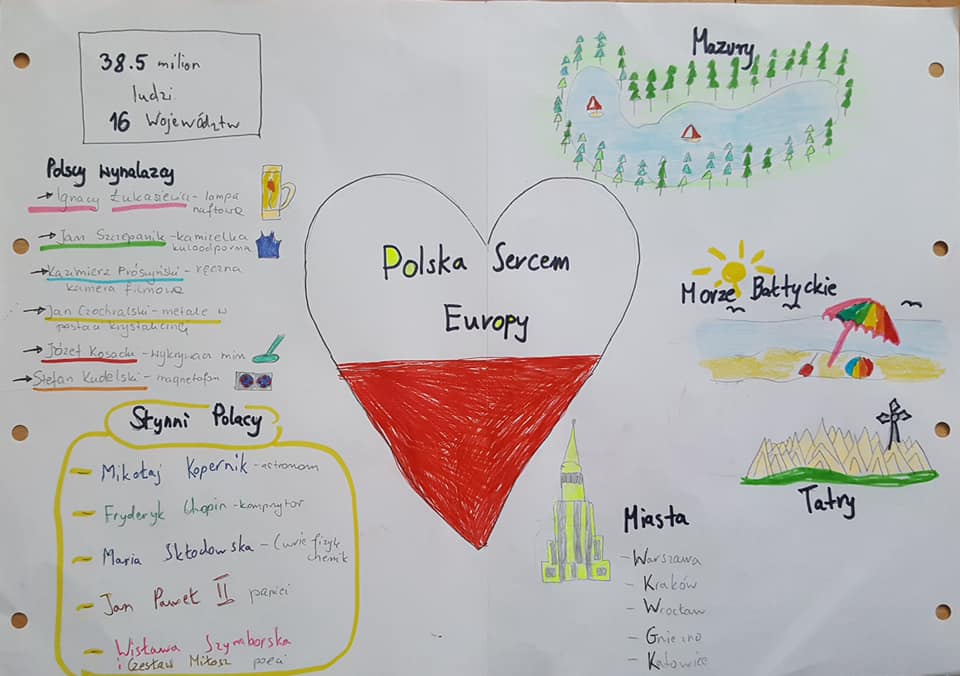 38.5 milion
ludzi
16 Województw
Polscy wynalazcy
Ignacy Łukasiewicz - lampa
naftowa
Jan Szczepanik - kamizelka
kuloodporna
Kazimierz Prószyński - ręczna
kamera filmowa
Jan Czochralski - metale w
postaci krystalicznej
Józef Kosacki - wykrywacz min
Stefan Kudelski - magnetofon
Słynni Polacy
Mikołaj Kopernik - astronom
Fryderyk Chopin - kompozytor
Maria Skłodowska - Curie fizyk
chemik
Jan Paweł II papież
Wisława Szymborska
i Czesław Miłosz poeci
Polska Sercem
Europy
Mazury
Morze Bałtyckie
Tatry
Miasta
- Warszawa
- Kraków
- Wrocław
- Gniezno
- Katowice